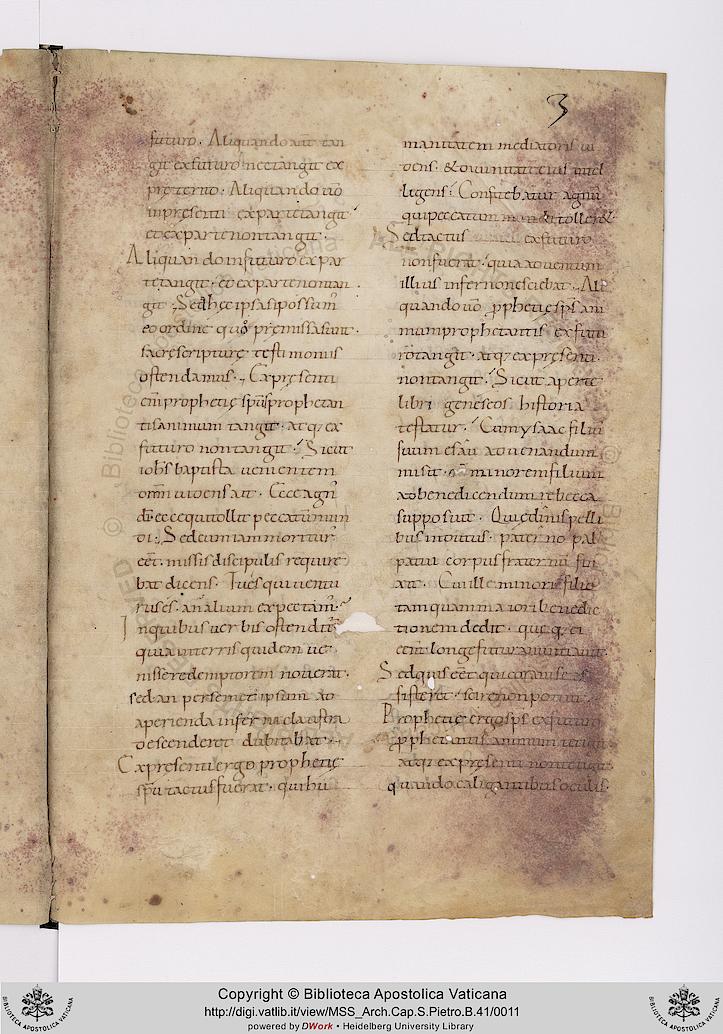 3
futuro. Aliquando aut̄ tan
git ex futuro nec tangit ex
preterito. Aliquando uō
in presenti ex parte tangit
et ex parte non tangit.
Aliquando in futuro ex par
te tangit. et ex parte non tan
git. Sed hęc ipsa si possum̄
eo ordine quo pręmissa sunt.
sacrę scripturę testimoniis
ostendamus. Ex pręsenti
eni̅ prophetię sp̄us prophetan
tis animum tangit. atq; ex
futuro non tangit. Sicut
iohs baptista uenientem
omn̄ uidens ait. Ecce agn̄
dī ecce qui tollit peccatū mun
di. Sed cum iam moritur̄
eēt. missis discipulis require
bat dicens. Tu es qui uentu
rus es. an alium expectam̄.
In quibus uerbis ostendit̄
quia in terris quidem ue
nisse redemptorem nouerat.
sed an per semet ipsum ad
aperienda inferni claustra
descenderet dubitabat.
Ex presenti ergo prophetię
sp̄u tactus fuerat. qui hu
manitatem mediatoris ui
dens. & diuinitatē eius intel
legens. Confitebatur agnū
qui peccatum mundi toller&
Sed tactus ex futuro
non fuerat. quia aduentum
illius inferno nesciebat. Ali
quando uō p̄phetię sp̄s ani
mum prophetantis ex futu
ro tangit. atq; ex pręsenti.
non tangit. Sicut aperte
libri geneseos historia
testatur. Cum ysaac filiū
suum esau ad uenandum
misit. minorem filium
ad benedicendum rebecca
supposuit. Qui ędinis pelli
bus indutus. pater no pal
pauit corpus fraternū fin
xit. Cui ille minori filio
tamquam maiori benedic
tionem dedit. que q; ei
etiā longe futura nuntiauit.
Sed quis eēt qui coram se as
sisteret. scire non potuit.
Prophetię ergo sp̄s ex futuro
p̄phetantis animum tetigit.
atq; ex presenti non tetigit.
quando caligantibus oculis.
Copyright © Biblioteca Apostolica Vaticana
http://digi.vatlib.it/view/MSS_Arch.Cap.S.Pietro.B.41/0011
powered by DWork • Heidelberg University Library